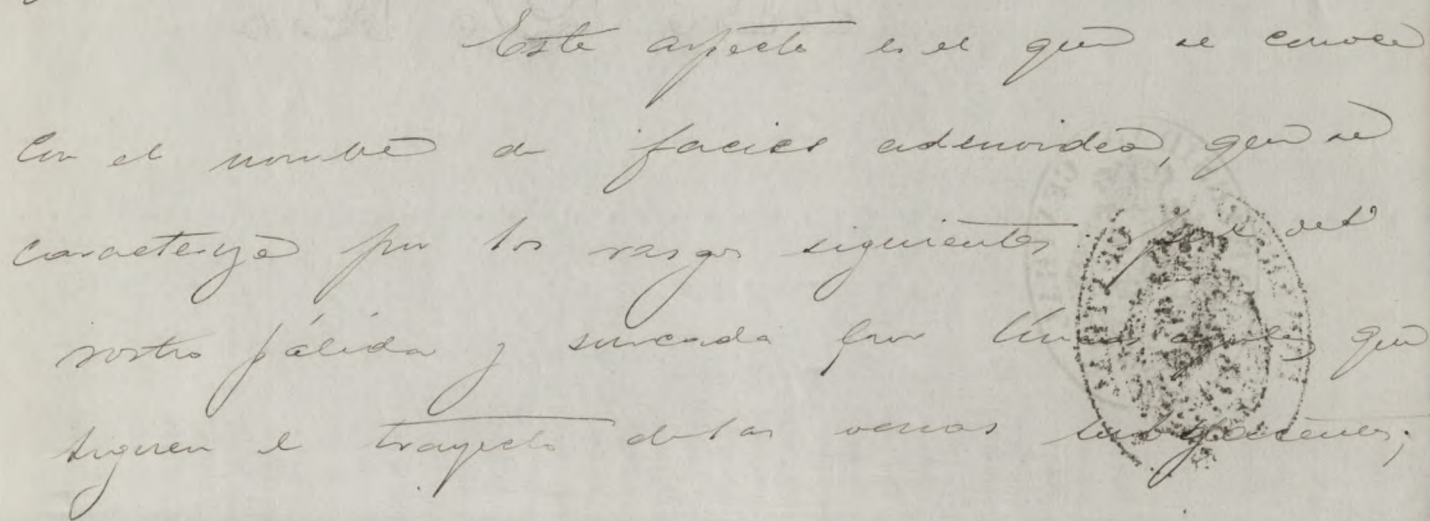 Este aspecto es el que se conoce
con el nombre de facies adenoidea, que se
caracteriza por los rasgos siguientes: piel del
rostro pálida y surcada por líneas azules que
siguen el trayecto de las venas subyacentes;